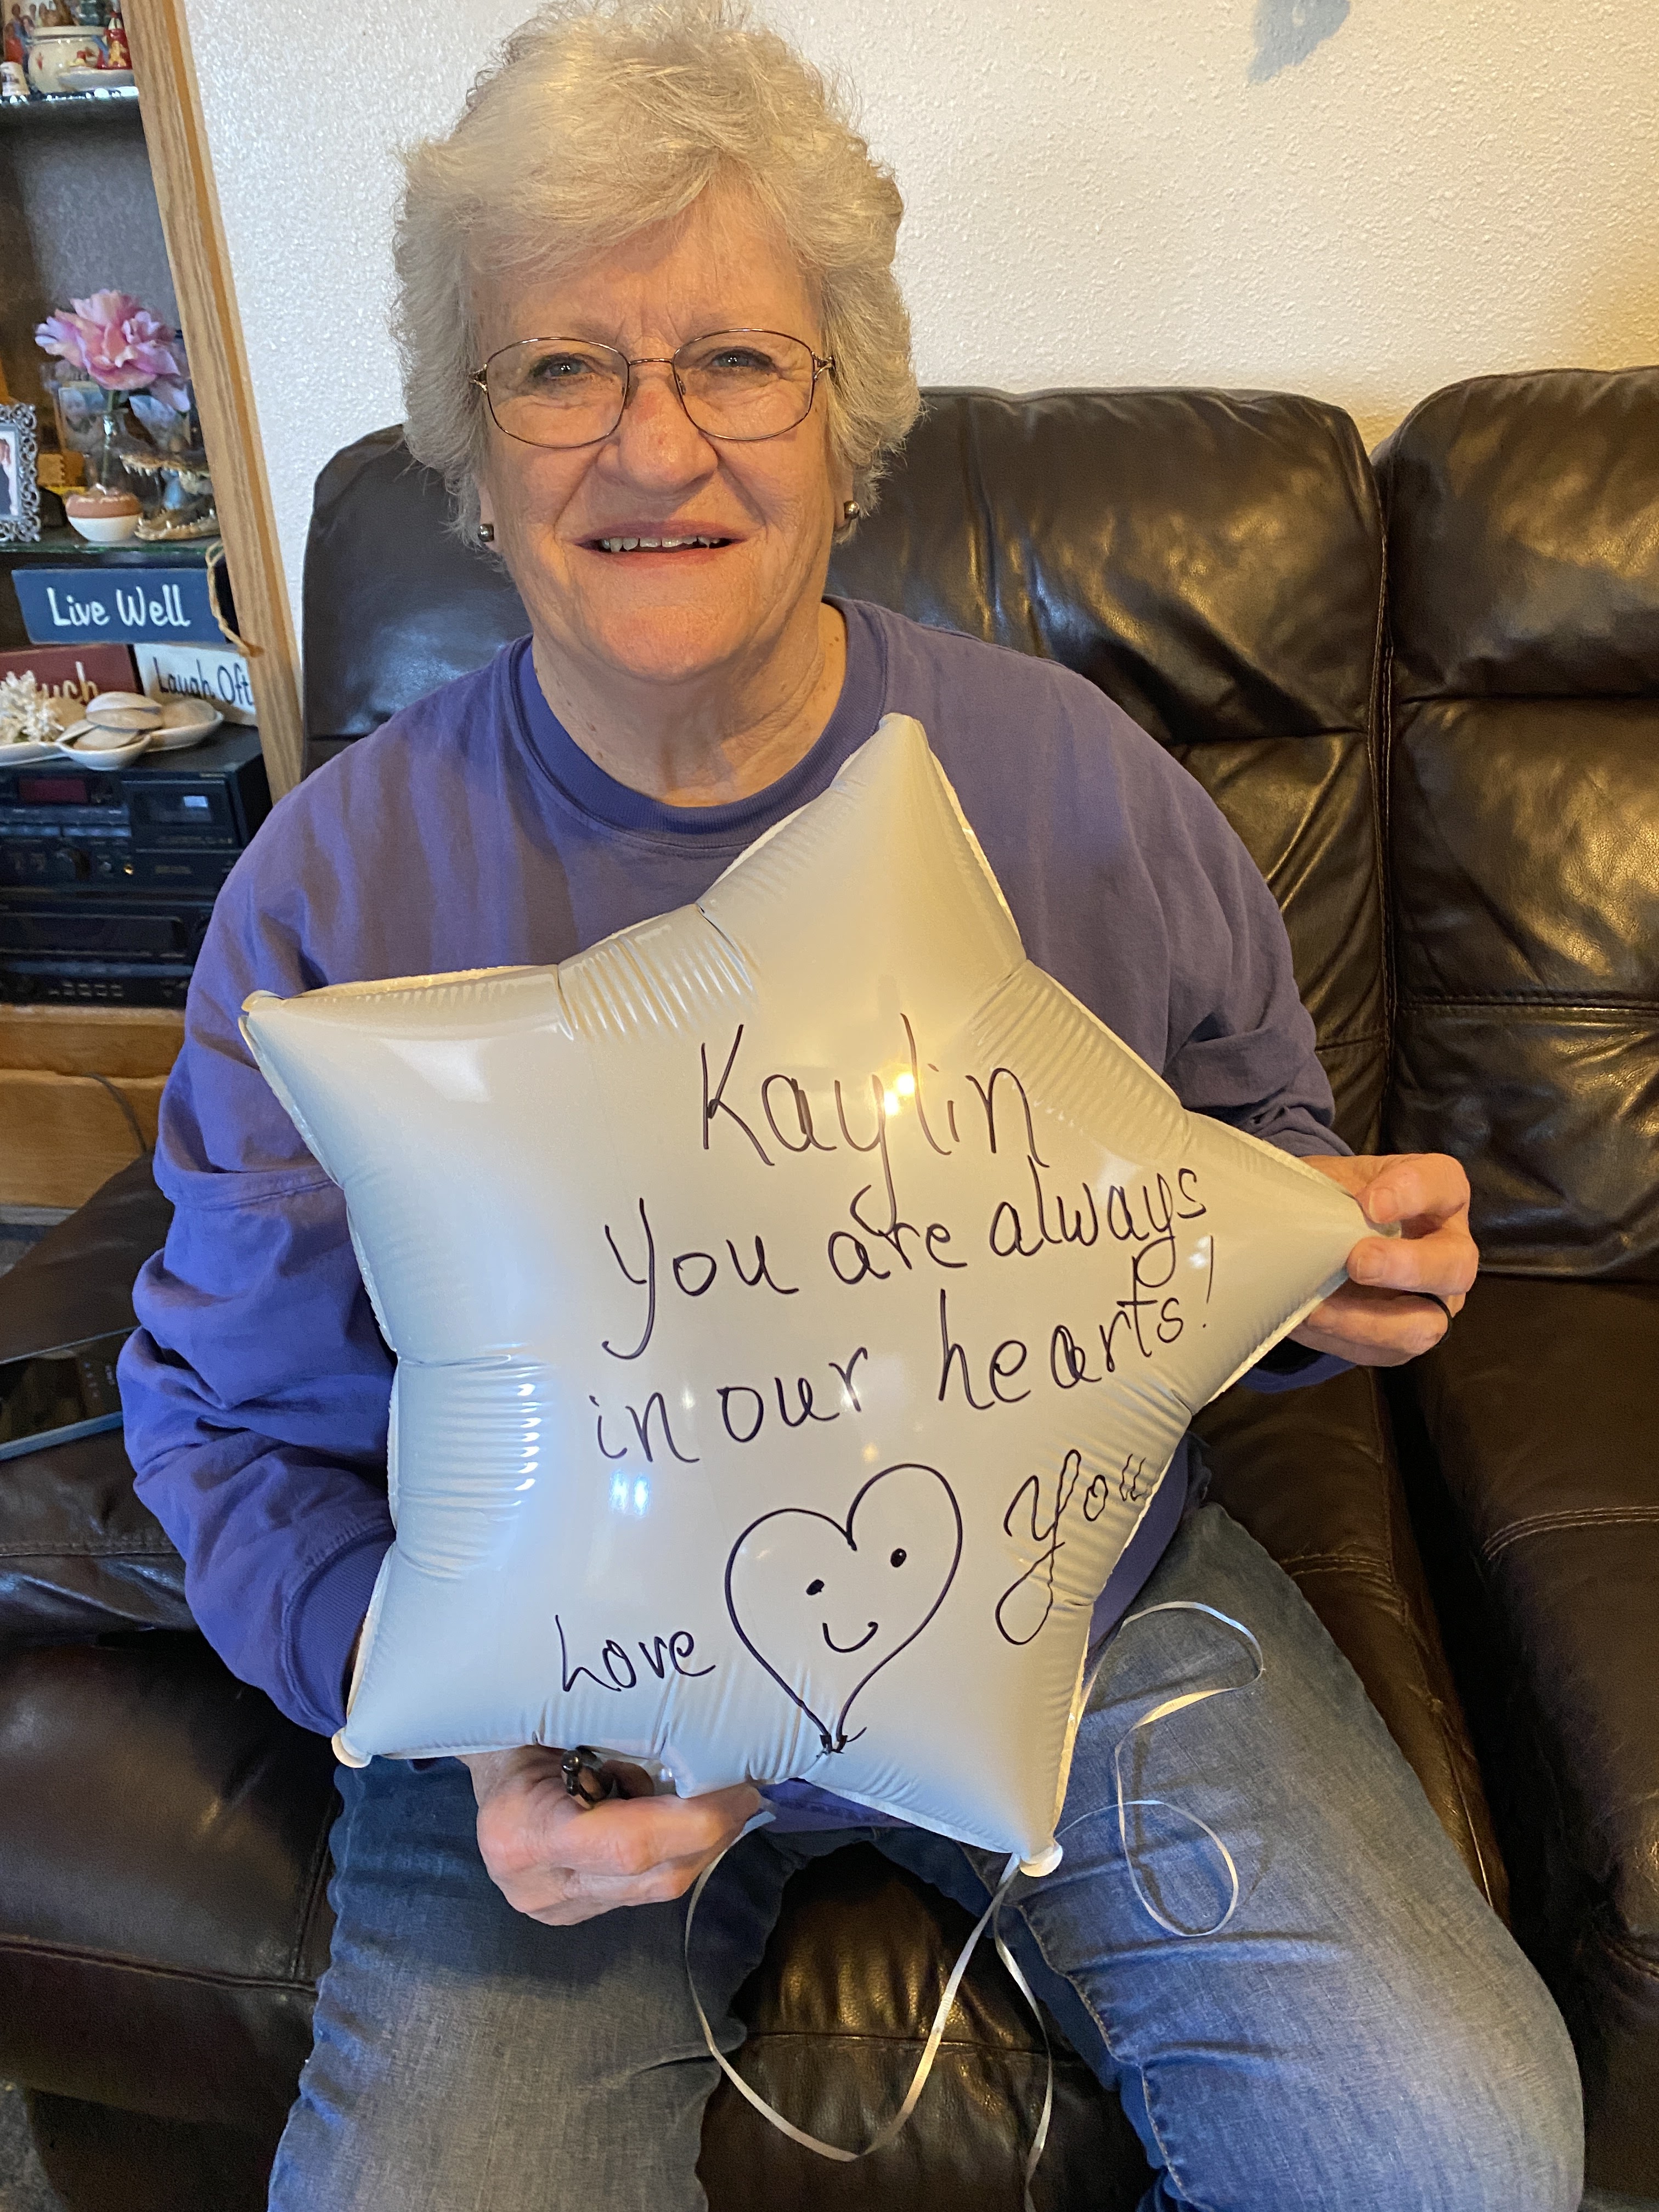 Live Well
Laugh Oft
Kaylin
You are always
in our hearts!
Love You